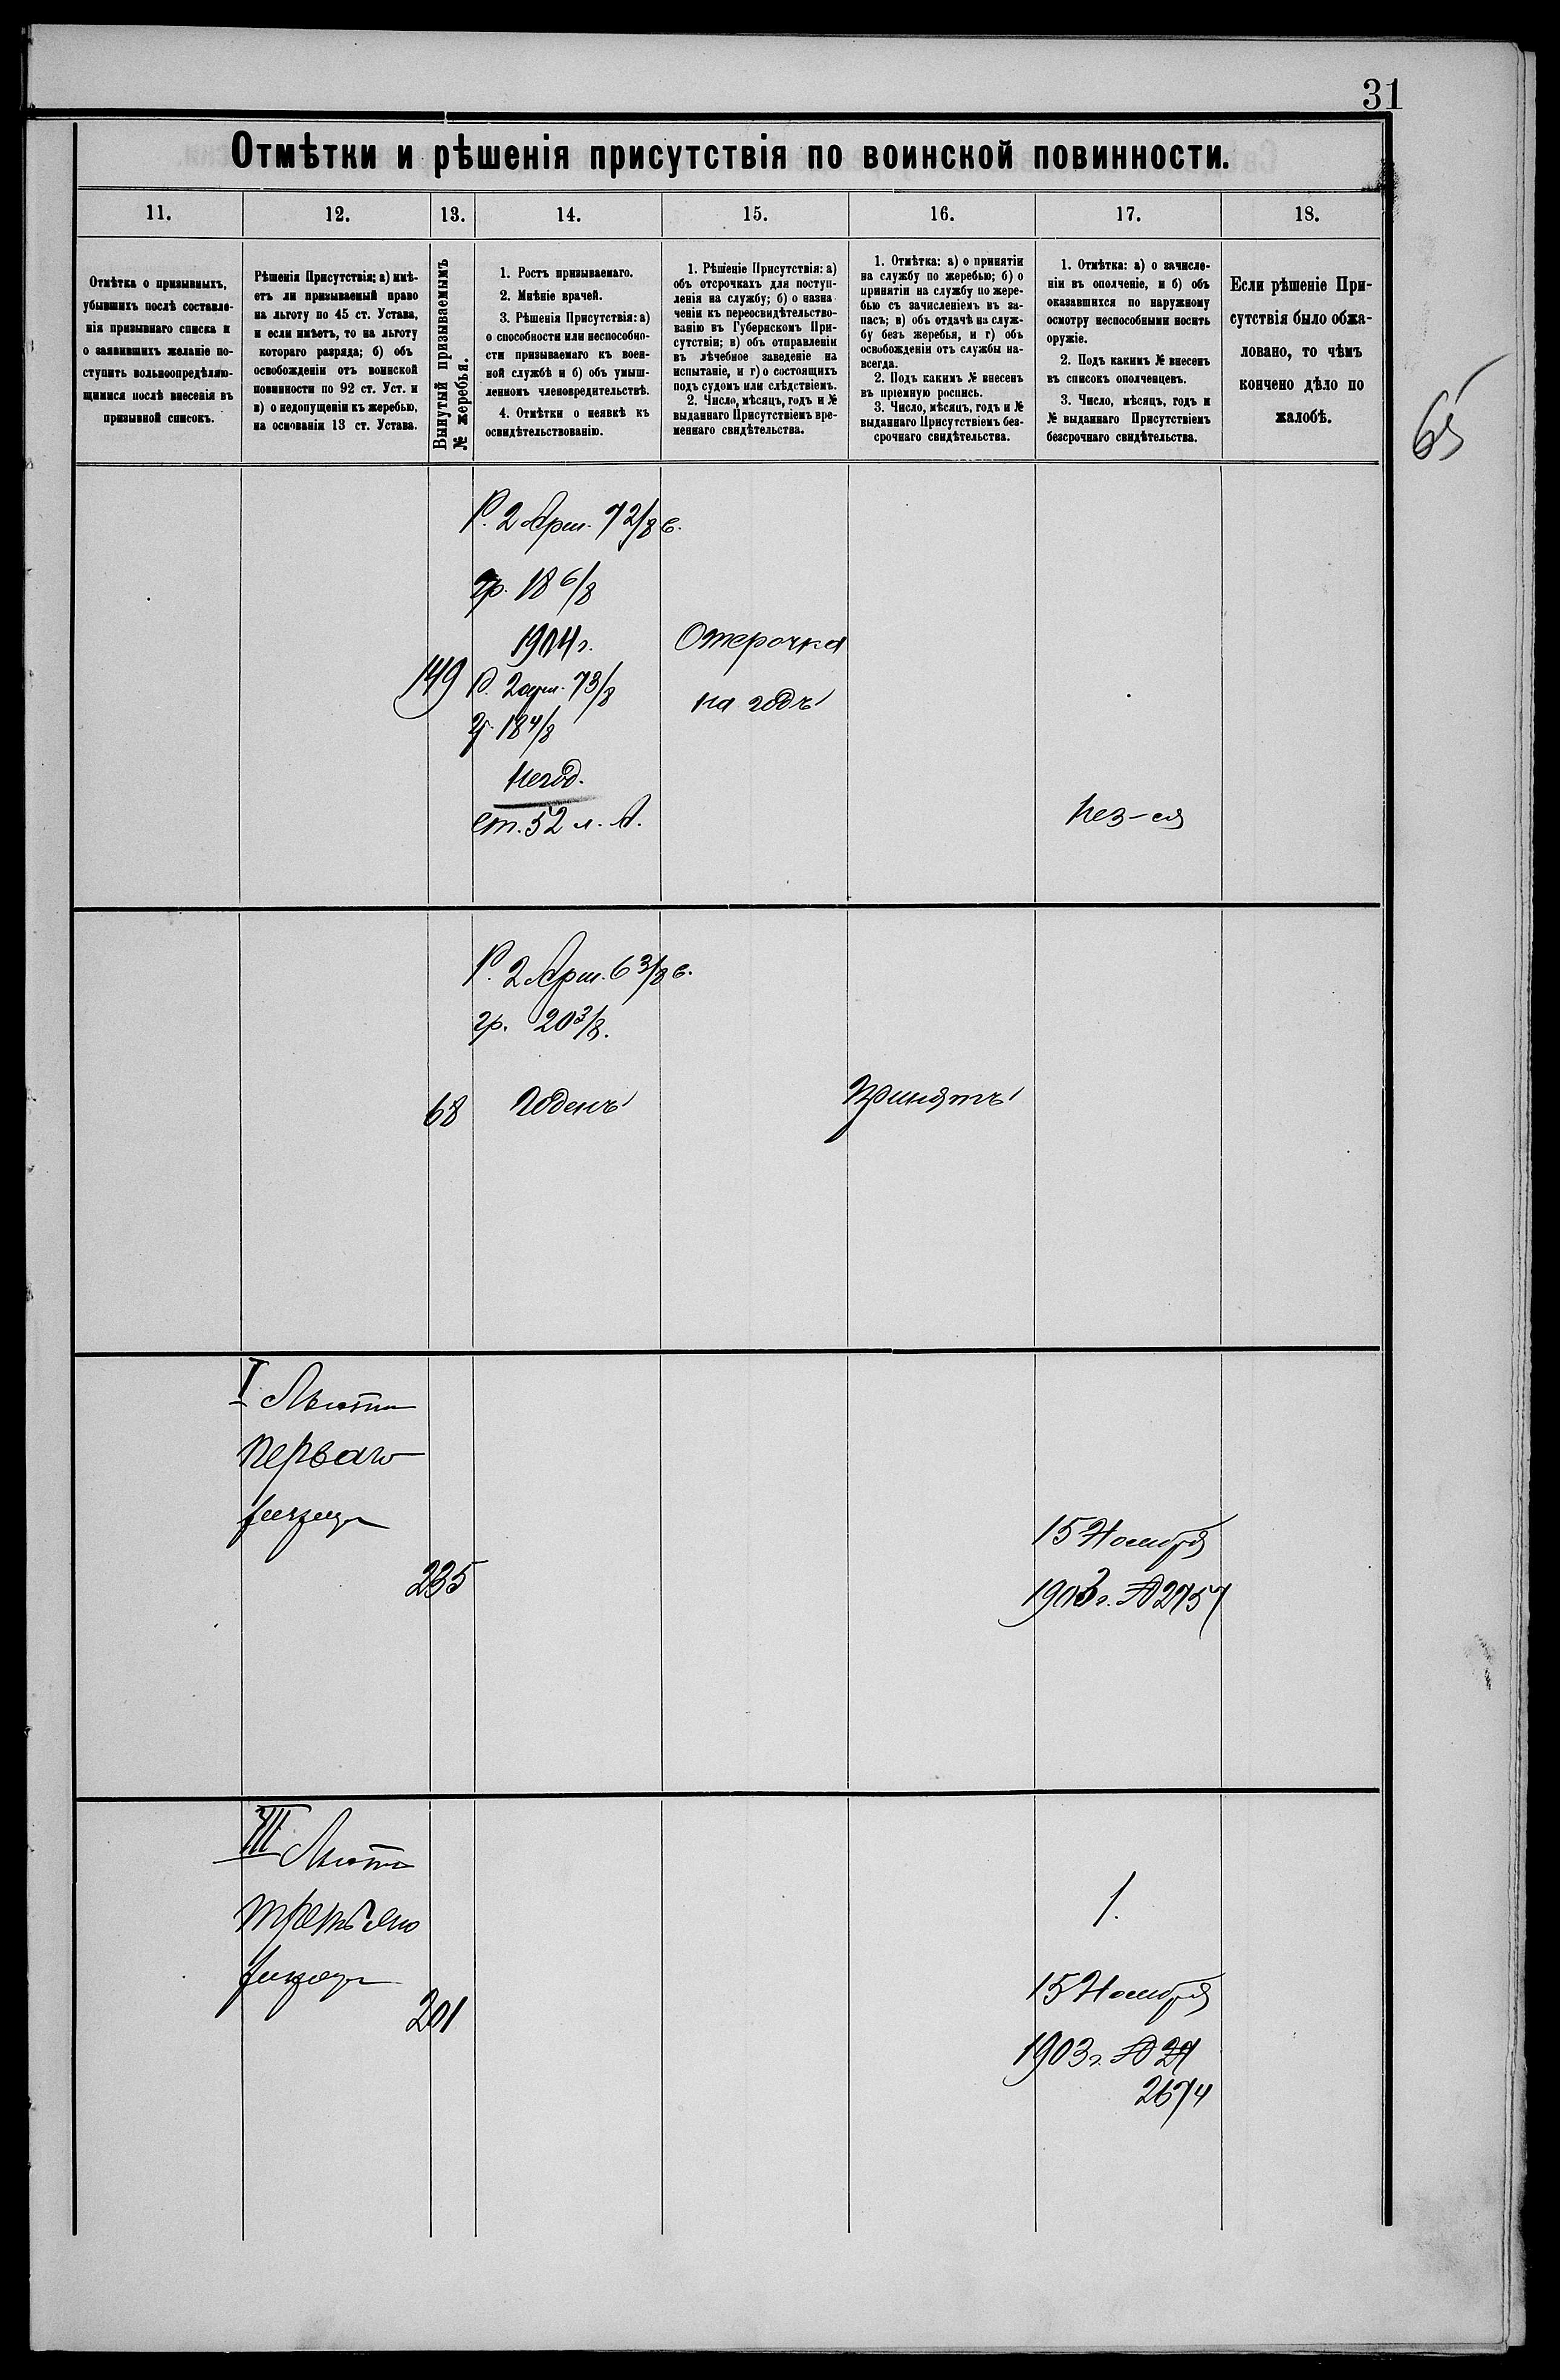 31
Отмѣтки и рѣшенія присутствія по воинской повинности.
11. 12. 13. 14. 15. 16. 17. 18.
Отмѣтка о призывныхъ,
убывшихъ послѣ составле-
нія призывнаго списка и
о заявившихъ желаніе по-
ступить вольноопредѣляю-
щимися послѣ внесенія въ
призывной списокъ.
Рѣшенія Присутствія: а) имѣ-
етъ ли призываемый право
на льготу по 45 ст. Устава,
и если имѣетъ, то на льготу
котораго разряда; б) объ
освобожденіи отъ воинской
повинности по 92 ст. Уст. и
в) о недопущеніи къ жеребью,
на основаніи 13 ст. Устава.
Вынутый призываемымъ
№ жеребья.
1. Ростъ призываемаго.
2. Мнѣніе врачей.
3. Рѣшенія Присутствія: а)
о способности или неспособно-
сти призываемаго къ воен-
ной службѣ и б) объ умыш-
ленномъ членовредительствѣ.
4. Отмѣтки о неявкѣ къ
освидѣтельствованію.
1. Рѣшеніе Присутствія: а)
объ отсрочкахъ для поступ-
ленія на службу; б) о назна
ченіи къ переосвидѣтельство-
ванію въ Губернскомъ При-
сутствіи; в) объ отправленіи
въ лѣчебное заведеніе на
испытаніе, и г) о состоящихъ
подъ судомъ или слѣдствіемъ.
2. Число, мѣсяцъ, годъ и №
выданнаго Присутствіемъ вре-
меннаго свидѣтельства.
1. Отмѣтка: а) о принятіи
на службу по жеребью; б) о
принятіи на службу по жере-
бью съ зачисленіемъ въ за-
пасъ; в) объ отдачѣ на служ-
бу безъ жеребья, и г) объ
освобожденіи отъ службы на-
всегда.
2. Подъ какимъ № внесенъ
въ пріемную роспись.
3. Число, мѣсяцъ, годъ и №
выданнаго Присутствіемъ без-
срочнаго свидѣтельства.
1. Отмѣтка: а) о зачисле-
ніи въ ополченіе, и б) объ
оказавшихся по наружному
осмотру неспособными носить
оружіе.
2. Подъ какимъ № внесенъ
въ списокъ ополченцевъ.
3. Число, мѣсяцъ, годъ и
№ выданнаго Присутствіемъ
безсрочнаго свидѣтельства.
Если рѣшеніе При-
сутствія было обжа-
ловано, то чѣмъ
кончено дѣло по
жалобѣ.
65
149
Р. 2 Арш. 7 2/8 в.
гр. 18 6/8
1904 г.
Р. 2 арш. 7 3/8
гр. 18 4/8
негод.
ст. 52 л. А.
Отсрочка
на годъ
68
Р. 2 Арш. 6 3/8 в.
гр. 20 3/8.
годенъ
Принятъ
I Льгота
перваго
разряда
235
15 Ноября
1903 г. № 2757
III Льгота
третьяго
разряда
201
1.
15 Ноября
1903 г. № 27
2674